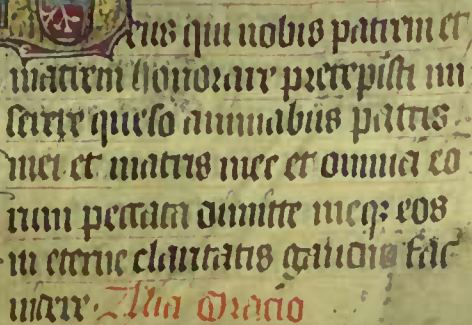 Deus qui nobis patrem et
matrem honorare precepisti mi
serere queso animabus patris
mei et matris mee et omnia eo
rum peccata dimitte meqꝫ eos
in eterne claritatis gaudio fac
videre. Alia Oracio